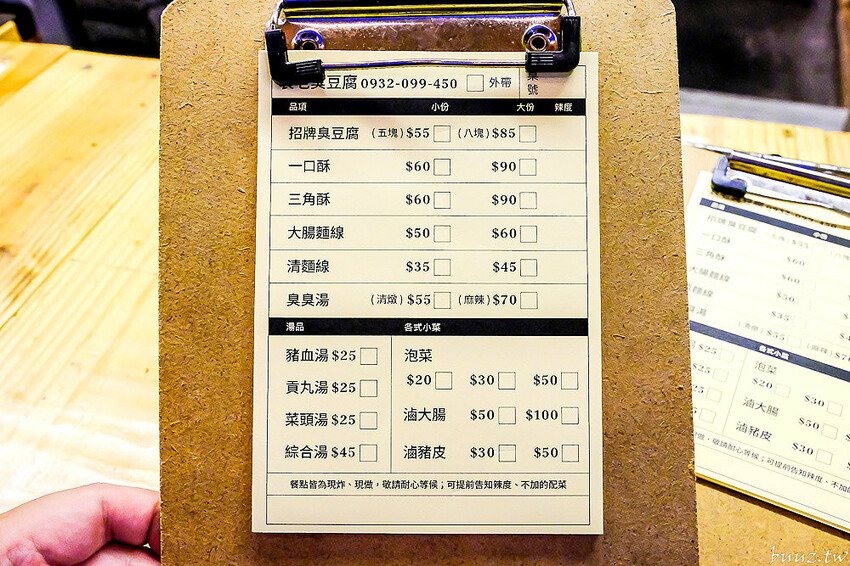 臭豆腐 0932-099-450 外帶
號
品項 小份 大份 辣度
招牌臭豆腐 (五塊) $55 (八塊) $85
一口酥 $60 $90
三角酥 $60 $90
大腸麵線 $50 $60
清麵線 $35 $45
臭臭湯 (清燉) $55 (麻辣) $70
湯品 各式小菜
豬血湯 $25
貢丸湯 $25
菜頭湯 $25
綜合湯 $45
泡菜
$20 $30 $50
滷大腸 $50 $100
滷豬皮 $30 $50
餐點皆為現炸、現做，敬請耐心等候；可提前告知辣度、不加的配菜
小份
招牌臭豆腐 $55
一口酥 $60
三角酥 $60
大腸麵線 $50
麵線 $35
臭湯 $55 (麻辣) $70
各式小菜
$25 泡菜
$25 $20 $30
滷大腸 $50
滷豬皮 $30
敬請耐心等候；可提前告知辣度、不加的配
buuz.tw